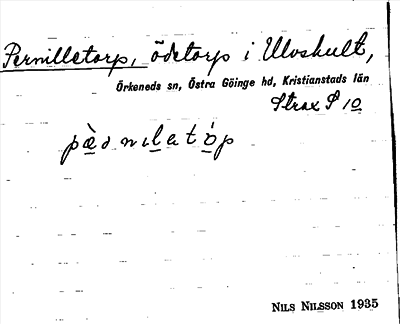 Pernilletorp, ödetorp i Ulvshult,
Örkeneds sn, Östra Göinge hd, Kristianstads län
Strax S 10
pæ̀dnɩlatóp
NILS NILSSON 1935